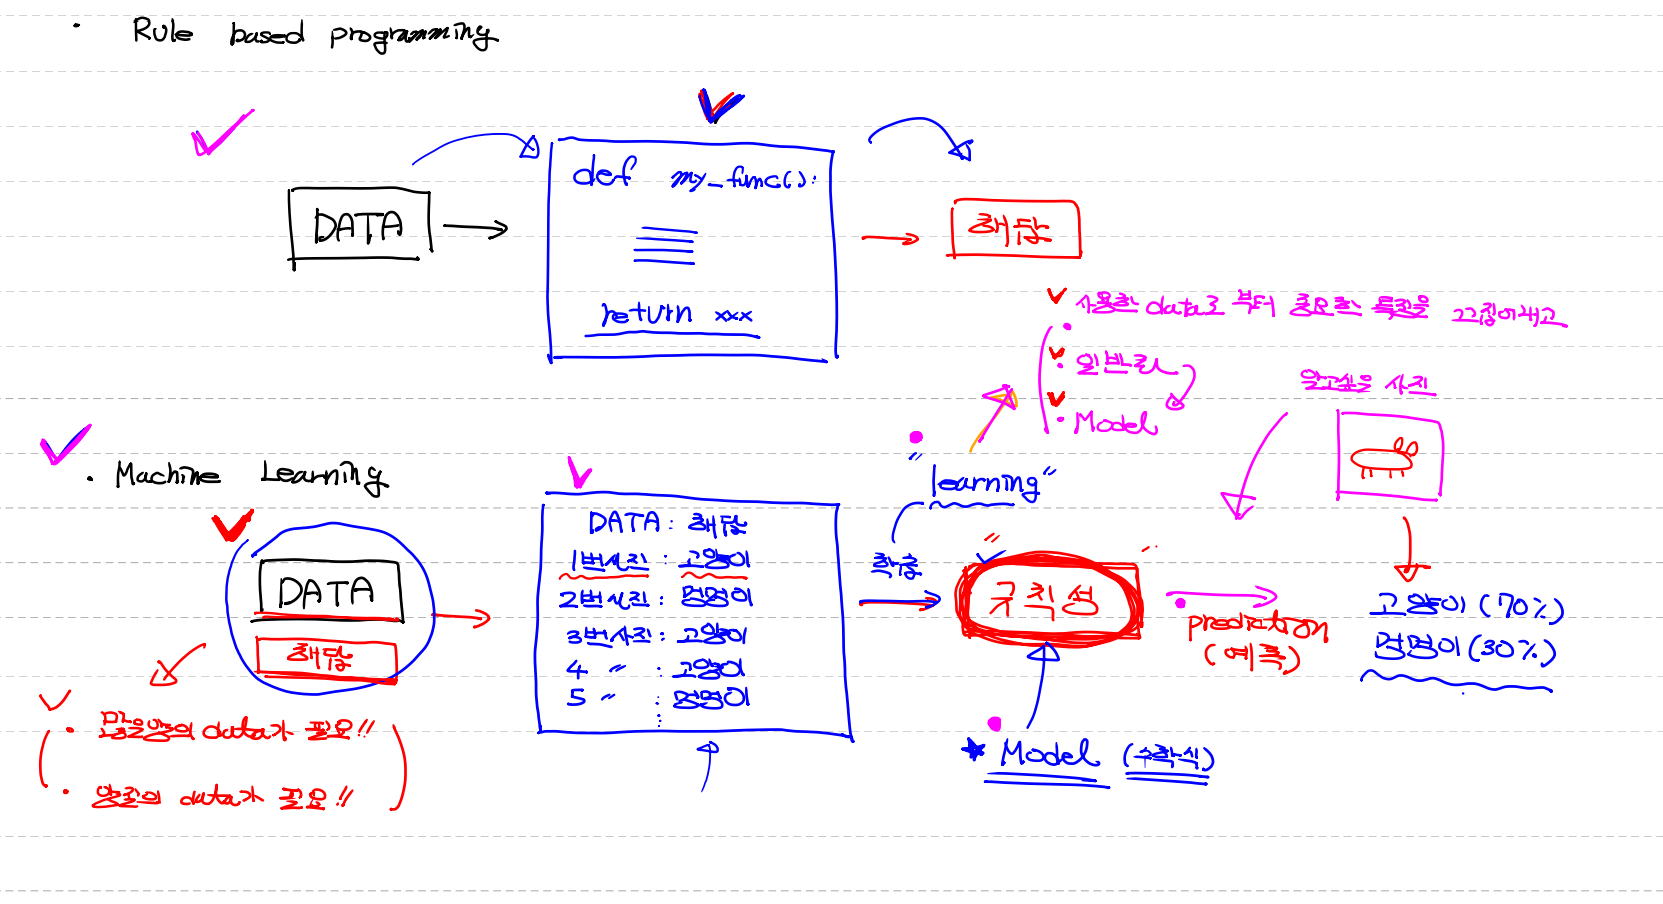 · Rule based programming
def my_func():
DATA
해답
return xxx
사용한 data로 부터 중요한 특징을 끄집어내고
· 일반화
· Model
알고싶은 사진
· Machine Learning
"learning"
DATA
해답
DATA : 해답
1번사진 : 고양이
2번사진 : 멍멍이
3번사진 : 고양이
4 〃 : 고양이
5 〃 : 멍멍이
⋮
학습
"규칙성"
prediction
(예측)
고양이 (70%)
멍멍이 (30%)
· 많은양의 data가 필요!!
· 양질의 data가 필요!!
★ Model (수학식)